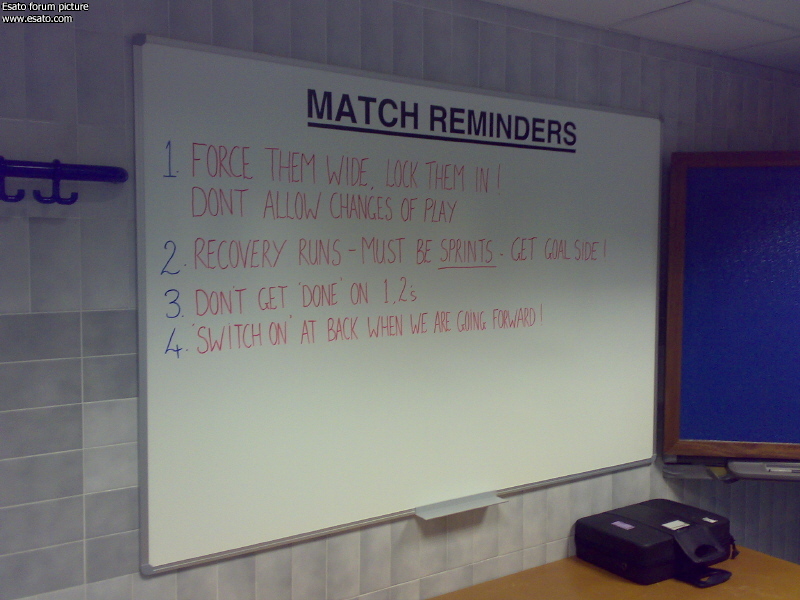 Esato forum picture
www.esato.com
MATCH REMINDERS
1. FORCE THEM WIDE, LOCK THEM IN!
DONT ALLOW CHANGES OF PLAY
2. RECOVERY RUNS - MUST BE SPRINTS. GET GOAL SIDE!
3. DON'T GET 'DONE' ON 1,2's
4. 'SWITCH ON' AT BACK WHEN WE ARE GOING FORWARD!